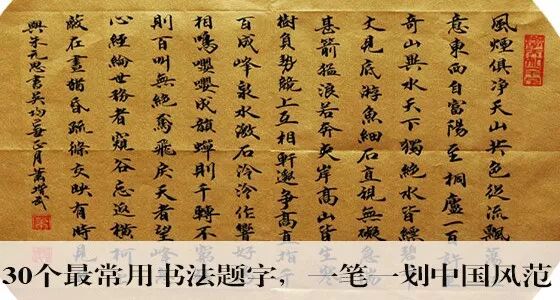 風煙俱净天山共色從流飄
意東西自富陽至桐廬一百許
奇山異水天下獨絕水皆縹碧
丈見底游魚細石直視無礙急
甚箭猛浪若奔夾岸高山皆生
樹負勢競上互相軒邈爭高直
百成峰泉水激石泠泠作響好
相鳴嚶嚶成韻蟬則千轉不窮
則百叫無絕鳶飛戾天者望峰
心經綸世務者窺谷忘返橫柯
蔽在晝猶昏疏條交映有時見
與朱元思書吳均
30个最常用书法题字，一笔一划中国风范